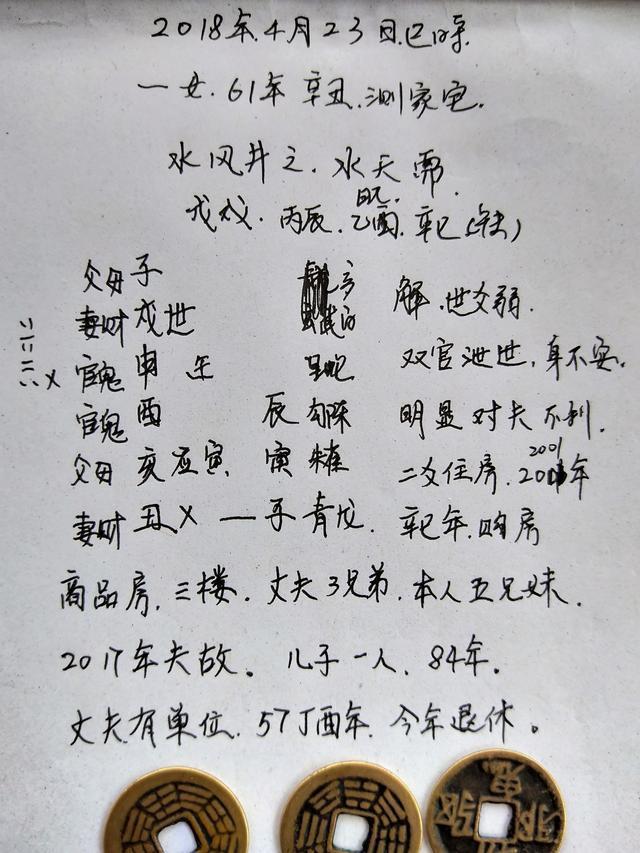 2018年.4月23日.巳时.
一女.61年 辛丑.测家宅.
水风井之.水天需.
日元.
戊戌.丙辰.乙酉.辛巳(午未)
父母 子 解.世爻弱.
妻财 戌 世 双官泄世.身不安.
官鬼 申 午 明显对夫不利.
官鬼 酉 辰 勾陈 二爻住房.2001年
父母 亥 应 寅 寅 朱雀 辛巳年.购房
妻财 丑 X — 子 青龙.
商品房.三楼.丈夫3兄弟.本人五兄妹.
2017年夫故。儿子一人.84年.
丈夫.有单位.57丁酉年.今年退休。